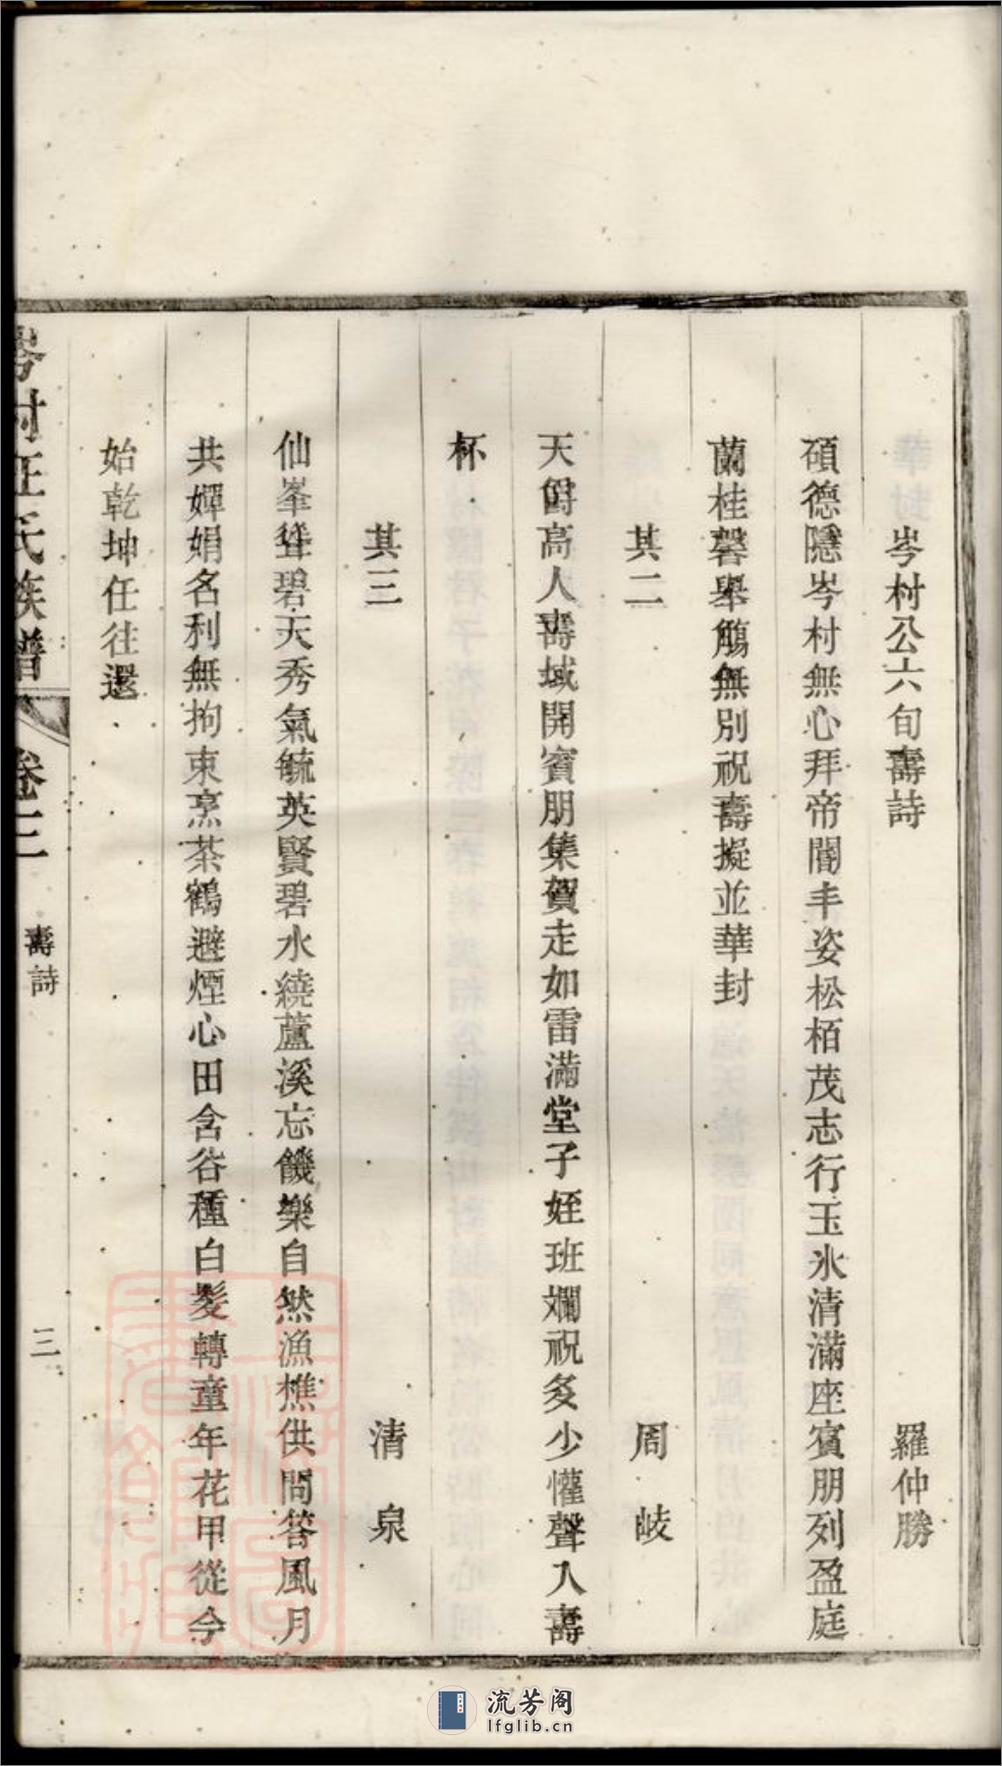 岑村公六旬壽詩　羅仲勝
碩德隱岑村無心拜帝閽丰姿松栢茂志行玉氷清滿座賓朋列盈庭
蘭桂馨舉觴無別祝壽擬並華封
其二　周岐
天爵高人壽域開賓朋集賀走如雷滿堂子姪班斕祝多少懽聲入壽
杯
其三　清泉
仙峯聳碧天秀氣毓英賢碧水繞蘆溪忘饑樂自然漁樵供問答風月
共嬋娟名利無拘束烹茶鶴避煙心田含谷種白髮轉童年花甲從今
始乾坤任往還
岑村汪氏族譜　卷二　壽詩　三
流芳阁
lfglib.cn